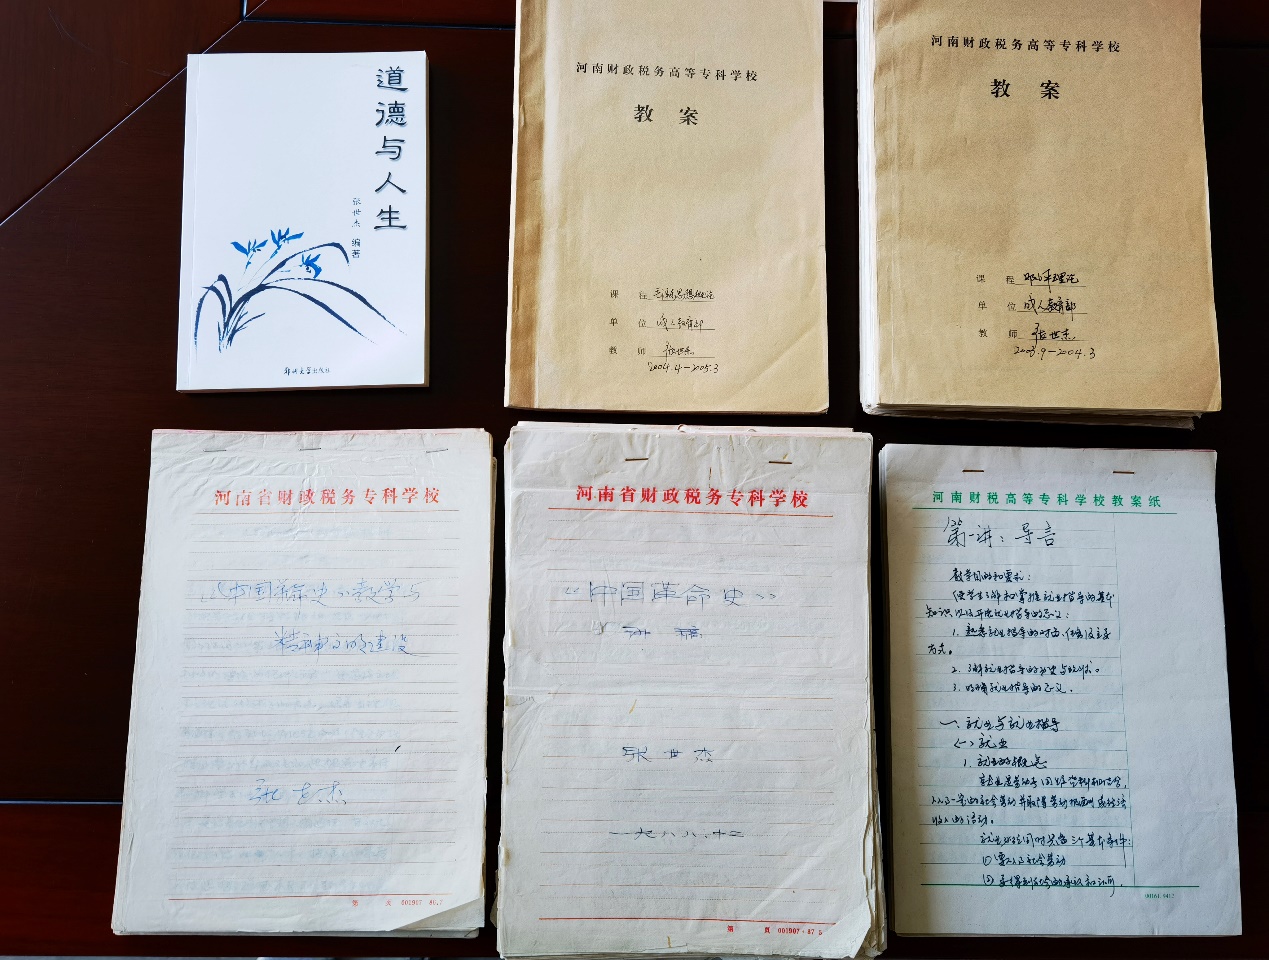 道德与人生
张世杰 编著
郑州大学出版社
河南财政税务高等专科学校
教 案
课 程 毛泽东思想概论
单 位 成人教育部
教 师 张世杰
2004.4—2005.3
河南财政税务高等专科学校
教 案
课 程 邓小平理论
单 位 成人教育部
教 师 张世杰
2003.9—2004.3
河南省财政税务专科学校
《中国革命史》教学与
精神文明建设
张世杰
第 页 001907 86.7
河南省财政税务专科学校
《中国革命史》
张世杰
一九八八.十二
第 页 001907·87 5
河南财税高等专科学校教案纸
第一讲：导言
教学目的和要求：
使学生了解和掌握就业指导的基本
知识以及开展就业指导的意义：
1. 熟悉就业指导的对象、任务及主要
2. 了解就业指导的历史与现状。
3. 明确就业指导的意义。
一、就业与就业指导
(一) 就业
1. 就业的概念
收入的活动。
就业必须同时具备三个基本条件：
(1) 要从事社会劳动